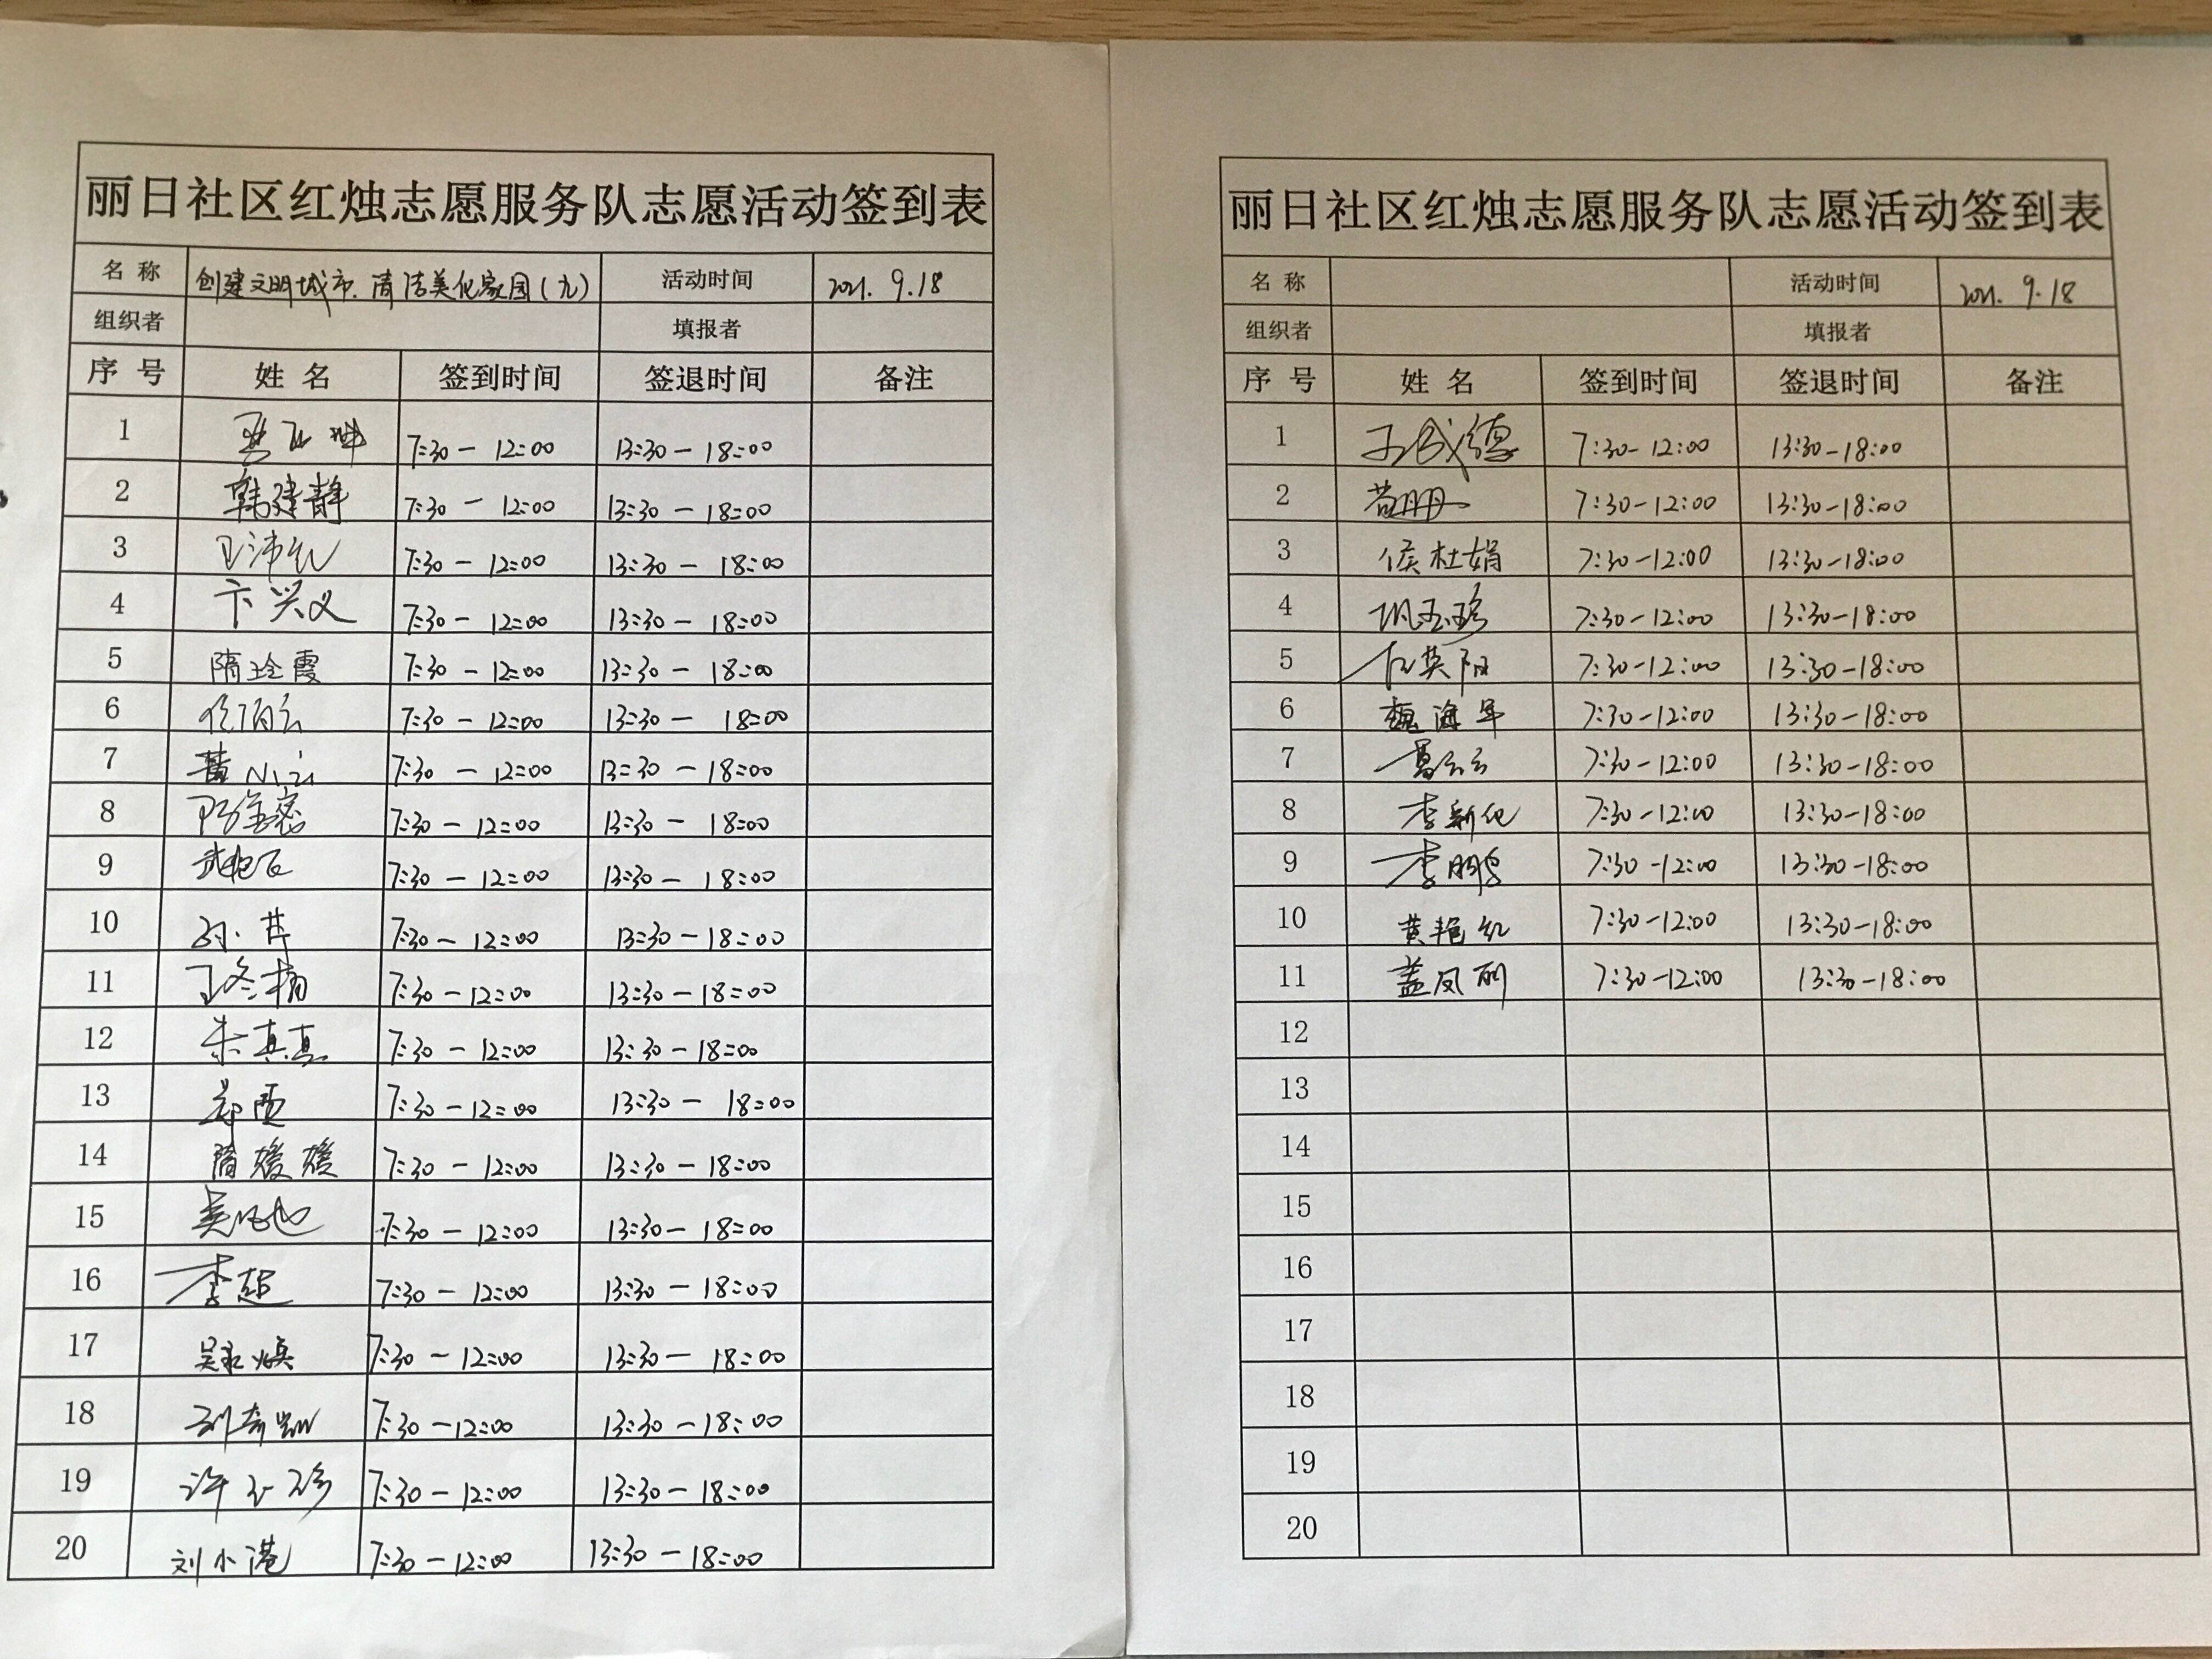 丽日社区红烛志愿服务队志愿活动签到表
名称 创建文明城市.清洁美化家园(九) 活动时间 2021.9.18
组织者 填报者
序号 姓名 签到时间 签退时间 备注
1 7:30-12:00 13:30-18:00
2 韩建静 7:30-12:00 13:30-18:00
3 王沛红 7:30-12:00 13:30-18:00
4 卞兴义 7:30-12:00 13:30-18:00
5 隋玲霞 7:30-12:00 13:30-18:00
6 7:30-12:00 13:30-18:00
7 7:30-12:00 13:30-18:00
8 7:30-12:00 13:30-18:00
9 7:30-12:00 13:30-18:00
10 孙卉 7:30-12:00 13:30-18:00
11 王冬梅 7:30-12:00 13:30-18:00
12 朱真真 7:30-12:00 13:30-18:00
13 7:30-12:00 13:30-18:00
14 隋媛媛 7:30-12:00 13:30-18:00
15 7:30-12:00 13:30-18:00
16 李超 7:30-12:00 13:30-18:00
17 7:30-12:00 13:30-18:00
18 7:30-12:00 13:30-18:00
19 许玉珍 7:30-12:00 13:30-18:00
20 刘小港 7:30-12:00 13:30-18:00
丽日社区红烛志愿服务队志愿活动签到表
名称 活动时间 2021.9.18
组织者 填报者
序号 姓名 签到时间 签退时间 备注
1 王成德 7:30-12:00 13:30-18:00
2 苟丹丹 7:30-12:00 13:30-18:00
3 侯杜娟 7:30-12:00 13:30-18:00
4 巩玉珍 7:30-12:00 13:30-18:00
5 7:30-12:00 13:30-18:00
6 魏海军 7:30-12:00 13:30-18:00
7 葛云云 7:30-12:00 13:30-18:00
8 李新化 7:30-12:00 13:30-18:00
9 李鹏 7:30-12:00 13:30-18:00
10 黄艳红 7:30-12:00 13:30-18:00
11 盖凤丽 7:30-12:00 13:30-18:00
12
13
14
15
16
17
18
19
20